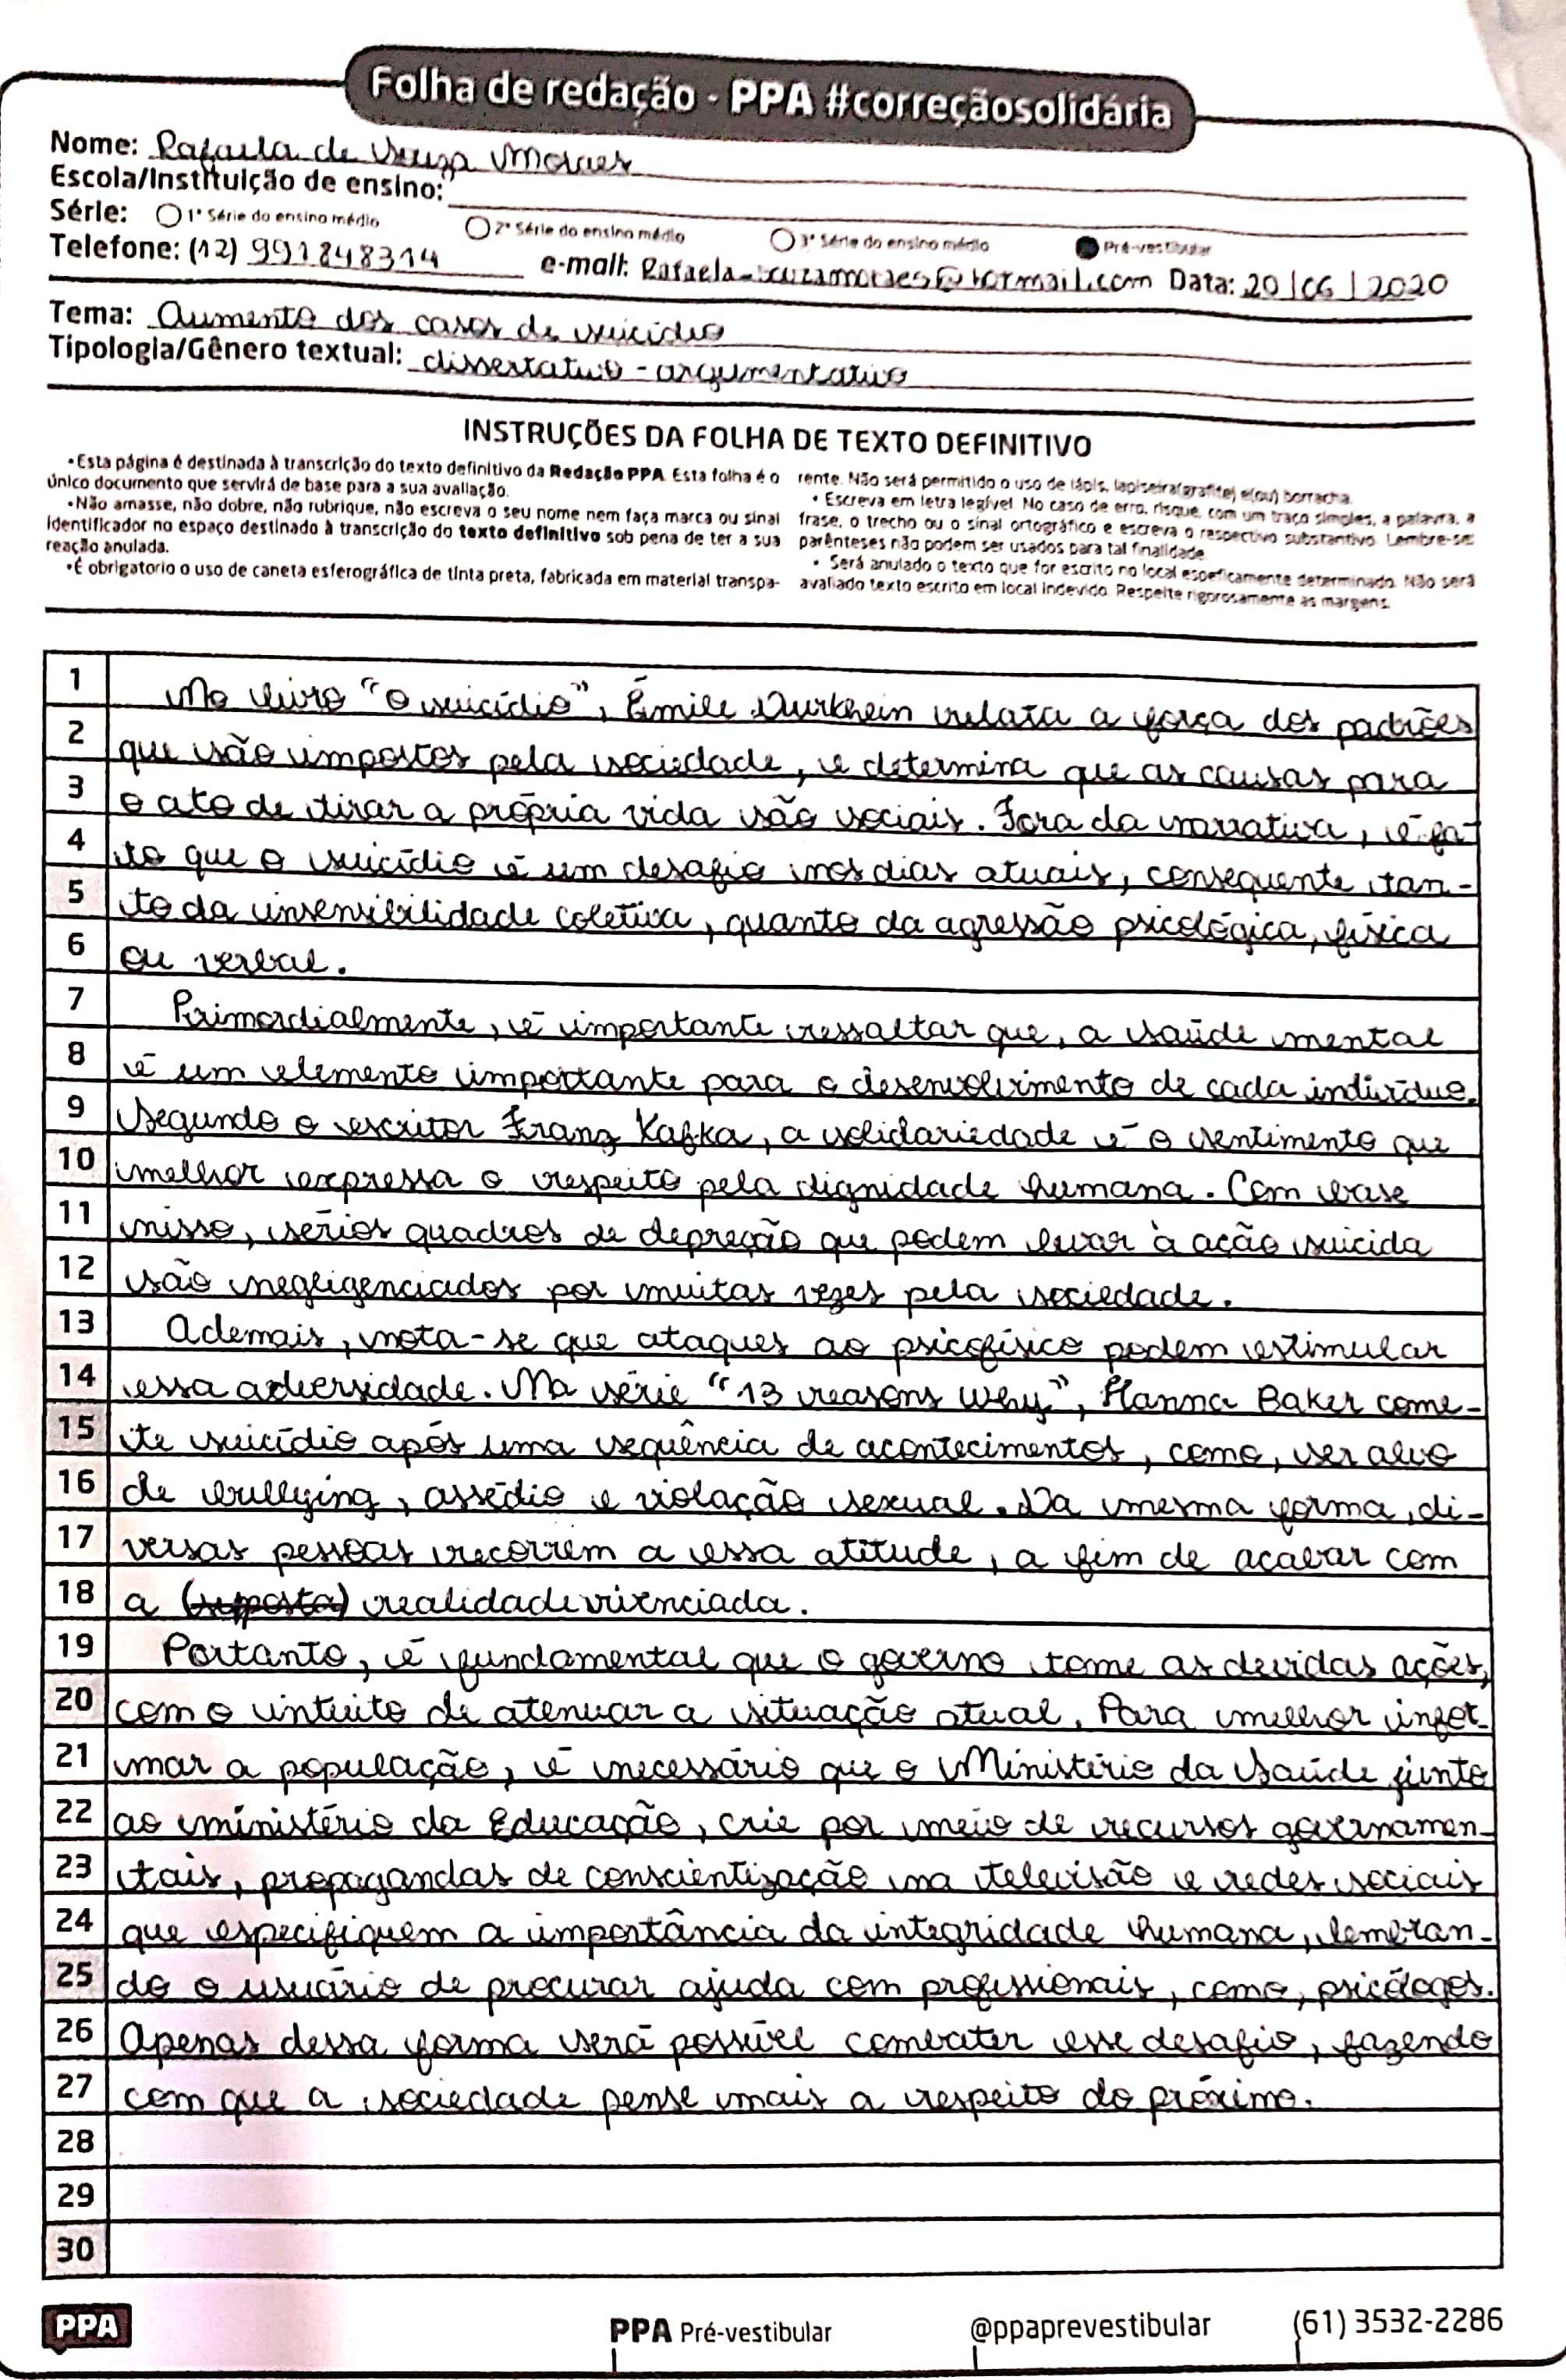 Folha de redação - PPA #correçãosolidária
Nome: Rafaela de Souza Moraes
Escola/Instituição de ensino:
Série: 1ª Série do ensino médio 2ª Série do ensino médio 3ª Série do ensino médio Pré-vestibular
Telefone: (12) 991848314 e-mail: Data: 20/06/2020
Tema: Aumento dos casos de suicídio
Tipologia/Gênero textual: dissertativo-argumentativo
INSTRUÇÕES DA FOLHA DE TEXTO DEFINITIVO
•Esta página é destinada à transcrição do texto definitivo da Redação PPA. Esta folha é o
único documento que servirá de base para a sua avaliação.
•Não amasse, não dobre, não rubrique, não escreva o seu nome nem faça marca ou sinal
identificador no espaço destinado à transcrição do texto definitivo sob pena de ter a sua
reação anulada.
•É obrigatorio o uso de caneta esferográfica de tinta preta, fabricada em material transpa-
rente. Não será permitido o uso de lápis, lapiseira(grafite) e(ou) borracha.
• Escreva em letra legível. No caso de erro, risque, com um traço simples, a palavra, a
frase, o trecho ou o sinal ortográfico e escreva o respectivo substantivo. Lembre-se:
parênteses não podem ser usados para tal finalidade.
• Será anulado o texto que for escrito no local espeficamente determinado. Não será
avaliado texto escrito em local indevido. Respeite rigorosamente as margens.
1 No livro "O suicídio", Émile Durkhein relata a força dos padrões
2 que são impostos pela sociedade, e determina que as causas para
3 o ato de tirar a própria vida são sociais. Fora da narrativa, é fa-
4 to que o suicídio é um desafio nos dias atuais, consequente tan-
5 to da insensibilidade coletiva, quanto da agressão psicológica, física
6 ou verbal.
7 Primordialmente, é importante ressaltar que, a saúde mental
8 é um elemento importante para o desenvolvimento de cada indivíduo.
9 Segundo o escritor Franz Kafka, a solidariedade é o sentimento que
10 melhor expressa o respeito pela dignidade humana. Com base
11 nisso, sérios quadros de depreção que podem levar à ação suicida
12 são negligenciados por muitas vezes pela sociedade.
13 Ademais, nota-se que ataques ao psicofísico podem estimular
14 essa adversidade. Na série "13 reasons why", Hanna Baker come-
15 te suicídio após uma sequência de acontecimentos, como, ser alvo
16 de bullying, assédio e violação sexual. Da mesma forma, di-
17 versas pessoas recorrem a essa atitude, a fim de acabar com
18 a (suposta) realidade vivenciada.
19 Portanto, é fundamental que o governo tome as devidas ações,
20 com o intuito de atenuar a situação atual. Para melhor infor-
21 mar a população, é necessário que o Ministério da Saúde junto
22 ao ministério da Educação, crie por meio de recursos governamen-
23 tais, propagandas de conscientização na televisão e redes sociais
24 que especifiquem a importância da integridade humana, lembran-
25 do o usuário de procurar ajuda com profissionais, como, psicólogos.
26 Apenas dessa forma será possível combater esse desafio, fazendo
27 com que a sociedade pense mais a respeito do próximo.
28
29
30
PPA PPA Pré-vestibular @ppaprevestibular (61) 3532-2286